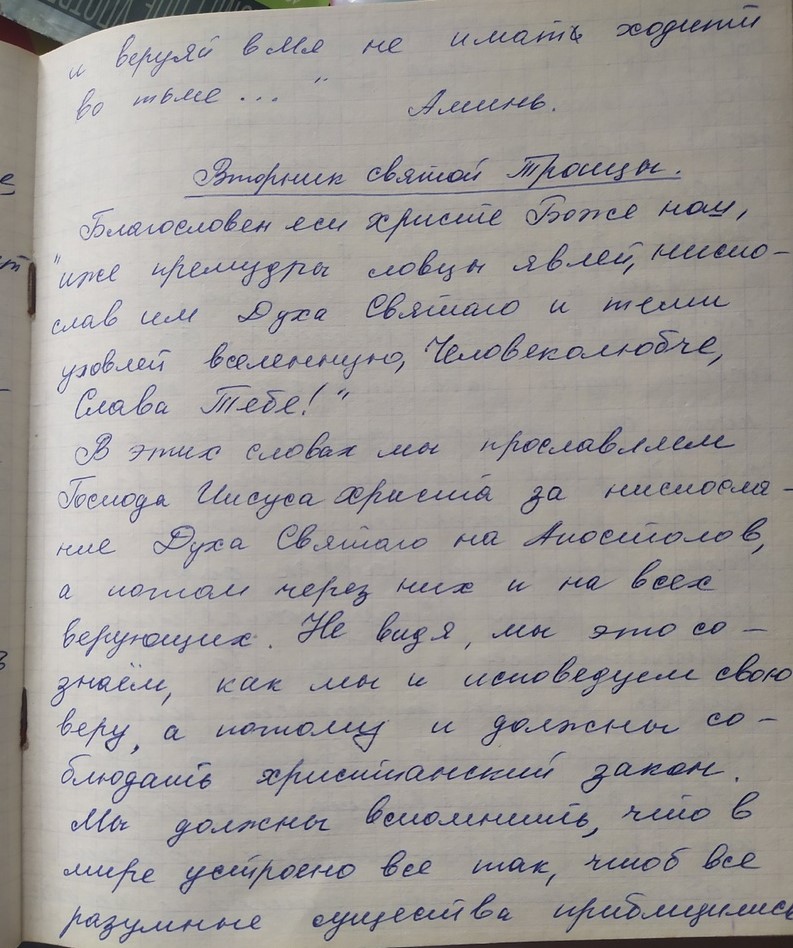 и веруяй в Мя не имать ходити
во тьме... "
Аминь.
Вторник святой Троицы.
Благословен еси Христе Боже наш,
"иже премудры ловцы явлей, ниспо-
слав им Духа Святаго и теми
уловлей вселенную, Человеколюбче,
Слава Тебе!"
В этих словах мы прославляем
Господа Иисуса Христа за ниспосла-
ние Духа Святаго на Апостолов,
а потом через них и на всех
верующих. Не видя, мы это со-
знаём, как мы и исповедуем свою
веру, а потому и должны со-
блюдать христианский закон.
Мы должны вспомнить, что в
мире устроено все так, чтоб все
разумные существа приблизились